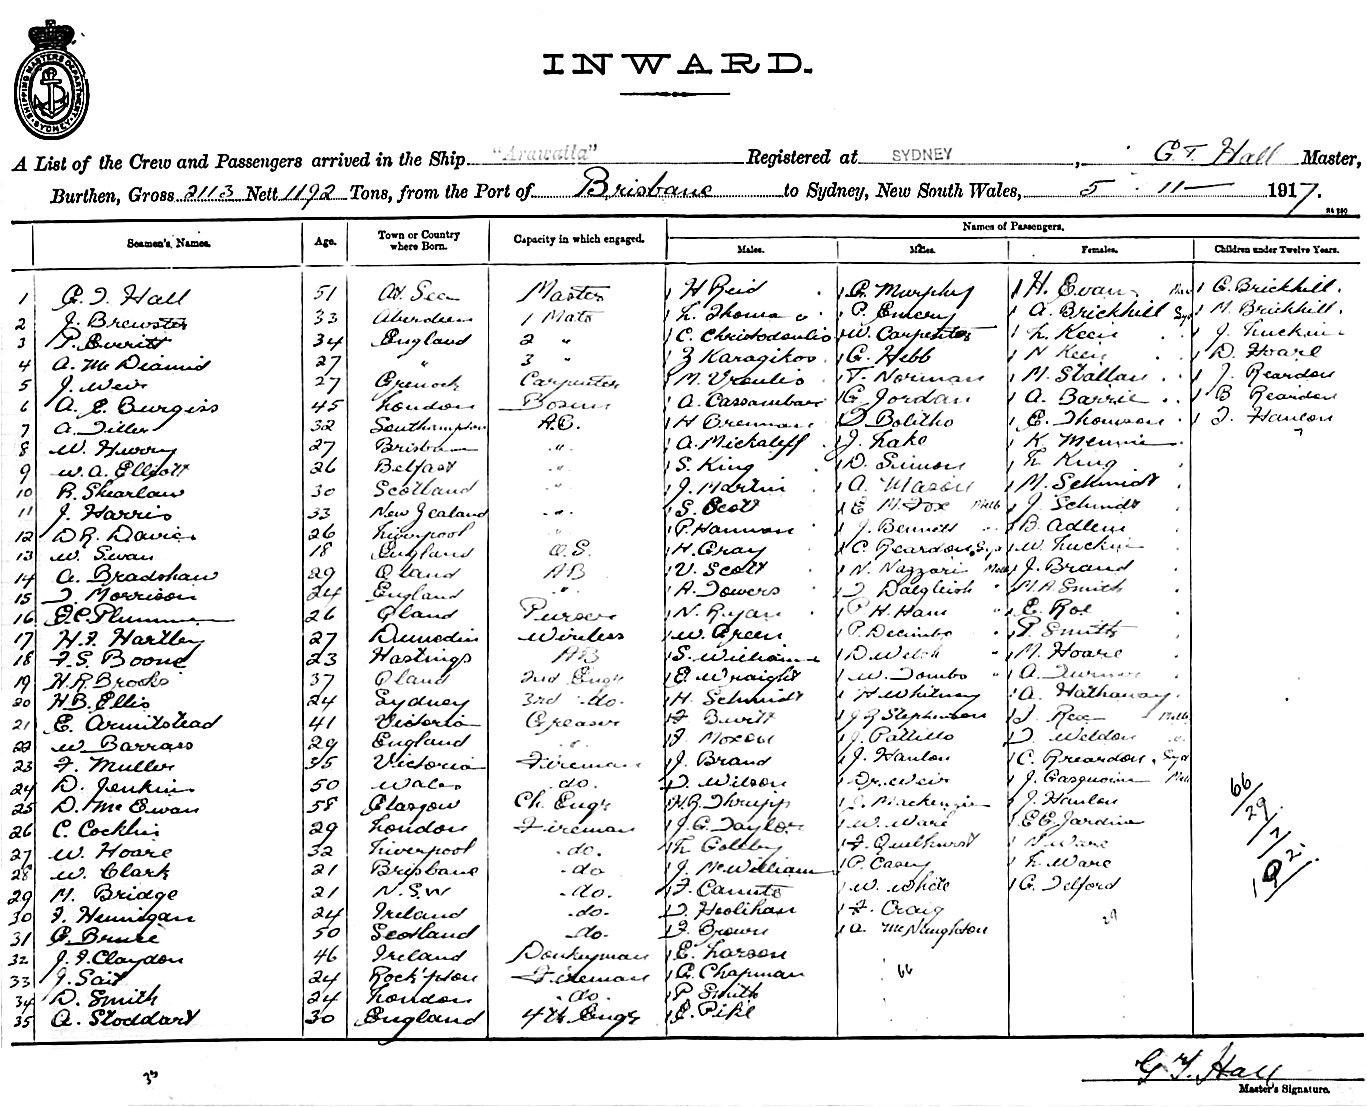 SHIPPING MASTERS DEPARTMENT SYDNEY
INWARD.
A List of the Crew and Passengers arrived in the Ship "Arawatta" Registered at SYDNEY, G. T. Hall Master,
Burthen, Gross 2113 Nett 1192 Tons, from the Port of Brisbane to Sydney, New South Wales, 5 . 11 1917.
Names of Passengers.
Seamen's Names. Age. Town or Country where Born. Capacity in which engaged. Males. Males. Females. Children under Twelve Years.
1 G. T. Hall 51 At Sea Master 1 H Reid 1 G. Murphy 1 H. Evans 1 C. Brickhill
2 J. Brewster 33 Aberdeen 1 Mate 1 L. Thoma 1 P. Emery 1 A. Brickhill Syd 1 M. Brickhill
3 P. Everitt 34 England 2 " 1 C. Christodoulis 1 W. Carpenter 1 L. Keen 1 J. Luckin
4 A. McDiamid 27 " 3 " 1 Z Karagikos 1 G. Hebb 1 N Keen 1 D. Hoare
5 J. Weir 27 Grenock Carpenter 1 M. Vroulis 1 T. Norman 1 M. Stallan 1 J. Reardon
6 A. E. Burgiss 45 London Bosun 1 A. Cassambar 1 G. Jordan 1 A. Barrie 1 B Reardon
7 A. Tiller 32 Southampton A.B. 1 H Brennan 1 D Bolitho 1 E. Thomson 1 T. Hanlon
8 W. Hurry 27 Brisbane " 1 A. Mickaleff 1 J. Lake 1 K. Mennie 7
9 W. A. Elliott 26 Belfast " 1 S. King 1 D. Simon 1 L King
10 R. Shearlaw 30 Scotland " 1 J. Martin 1 A. Mason 1 M. Schmidt
11 J. Harris 33 New Zealand " 1 S. Scott 1 E McFox Melb 1 J. Schmidt
12 D R. Davies 26 Liverpool " 1 P. Hannan 1 J. Bennett " 1 B. Adlem
13 W. Swan 18 England O.S. 1 H. Gray 1 C. Reardon Syd 1 W. Luckin
14 A. Bradshaw 29 Qland AB 1 V. Scott 1 N. Nazzari Melb 1 J. Brand
15 T Morrison 24 England " 1 A. Towers 1 D Dalgleish " 1 M. A. Smith
16 E. C. Plummer 26 Qland Purser 1 N. Ryan 1 P. H. Ham " 1 E. Roe
17 H. F. Hartley 27 Dunedin Wireless 1 W. Green 1 P. Decimbo " 1 P. Smith
18 F. S. Boone 23 Hastings AB 1 S. Williams 1 D. Welch " 1 M. Hoare
19 H. R. Brooks 37 Qland 2nd Engr 1 E. Wraight 1 W. Tombo " 1 A. Turner
20 H. B. Ellis 24 Sydney 3rd do. 1 H. Schmidt 1 H. Whitney 1 A. Hathaway
21 E. Armitstead 41 Victoria Greaser 1 F Burtt 1 J. R Stephenson 1 J. Rex Melb
22 W Barrass 29 England " 1 F. Moxon 1 J. Pattillo 1 D Weldon
23 F. Muller 35 Victoria Fireman 1 J. Brand 1 J. Hanlon 1 C. Rreardon Syd
24 D. Jenkins 50 Wales do. 1 D. Wilson 1 Dr. Weir 1 J. Gasquoine Melb
25 D. McEwan 58 Glasgow Ch. Engr 1 H. G. Thrupp 1 J. Mackenzie 1 J. Hanlon
26 C. Cocklin 29 London Fireman 1 J. G. Taylor 1 W. Ware 1 E E. Jardine
27 W. Hoare 32 Liverpool do. 1 L Goldby 1 F. Quelhurst 1 N. Ware
28 W. Clark 21 Brisbane do 1 J. McWilliam 1 P. Casey 1 L. Ware
29 M. Bridge 21 N.S.W do. 1 F. Canuto 1 W. White 1 G. Telford
30 J. Hennigan 24 Ireland do. 1 D. Hoolihan 1 F. Craig 29
31 G. Bruce 50 Scotland do. 1 F. Brown 1 A. McNaughton
32 J. F. Claydon 46 Ireland Donkeyman 1 E. Larson
33 J. Sait 24 Rock'pton Fireman 1 G. Chapman 66
34 D. Smith 24 London do. 1 P Smith
35 A. Stoddart 30 England 4th Engr 1 E. Pike
66/29/7/
102
35
G T. Hall
Master's Signature.